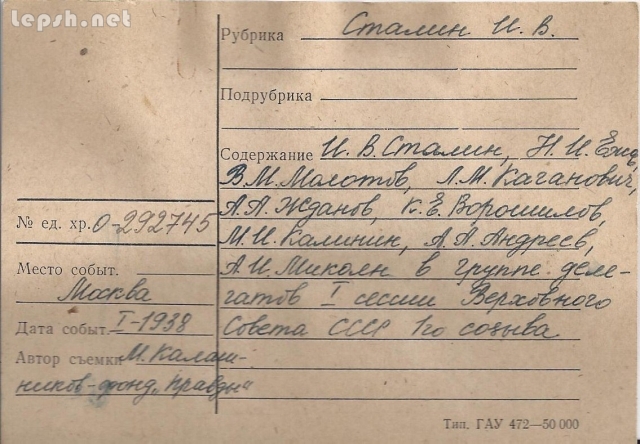 lepsh.net
Рубрика Сталин И. В.
Подрубрика
Содержание И. В. Сталин, Н. И. Ежов,
В. М. Молотов, Л. М. Каганович,
А. А. Жданов, К. Е. Ворошилов,
М. И. Калинин, А. А. Андреев,
А. И. Микоян в группе деле-
гатов I сессии Верховного
Совета СССР 1го созыва
№ ед. хр. 0-292745
Место событ.
Москва
Дата событ. I-1938
Автор съемки М. Калаш-
ников-фонд „Правды“
Тип. ГАУ 472—50 000